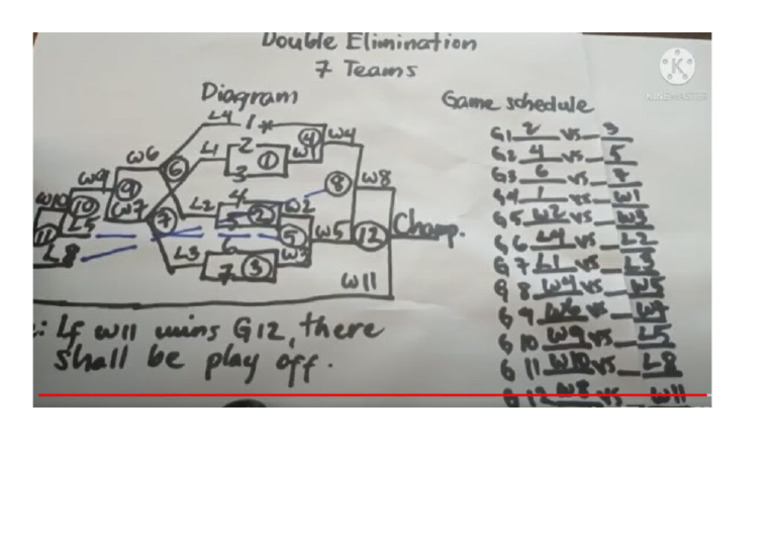 Double Elimination
7 Teams
Diagram
Game schedule
KINEMASTER
L4 1 *
W6 6 L1 2 1 W1 4 W4
3
W9 9 8 W8
W10 10 W7 7 L2 4 2 W2
11 L5 5 5 W5 12 Champ.
L8 L3 6 W3
7 3
W11
: If W11 wins G12, there
shall be play off.
G1 2 vs 3
G2 4 vs 5
G3 6 vs 7
G4 1 vs W1
G5 W2 vs W3
G6 L4 vs L2
G7 L1 vs L3
G8 W4 vs W5
G9 W6 vs W7
G10 W9 vs L5
G11 W10 vs L8
G12 W8 vs W11